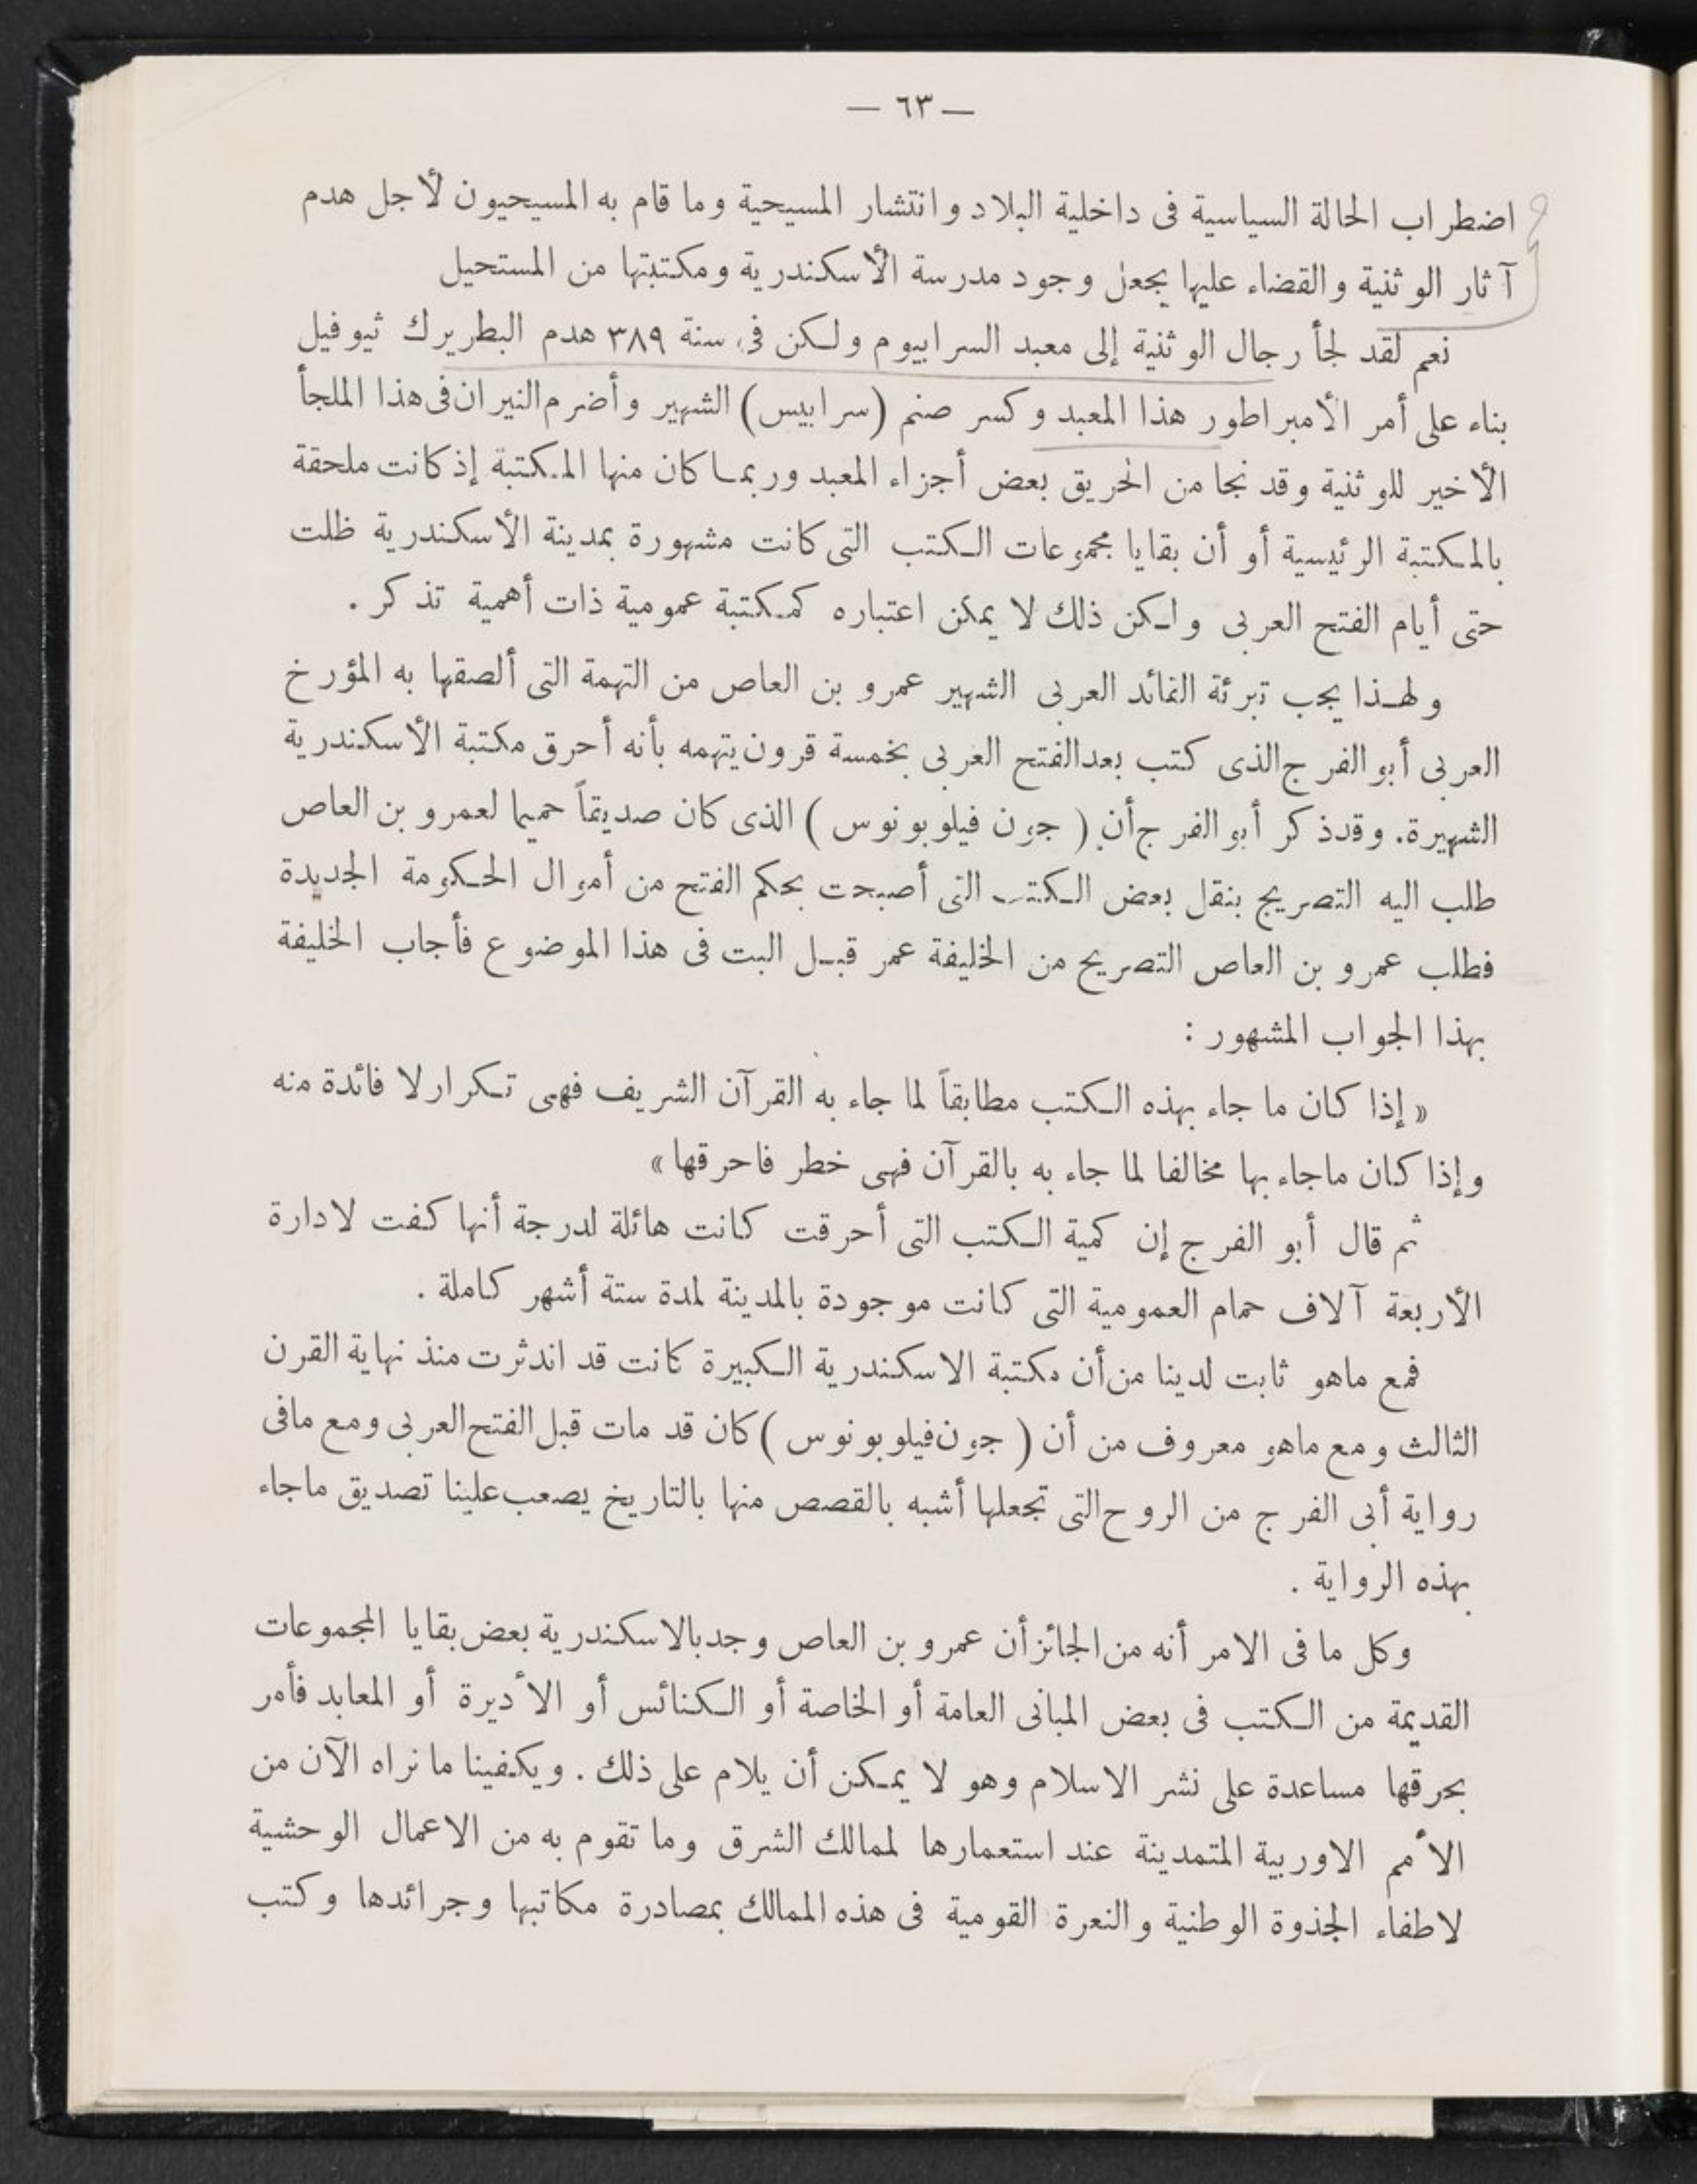 — ٦٣ —
اضطراب الحالة السياسية فى داخلية البلاد وانتشار المسيحية وما قام به المسيحيون لأجل هدم
آثار الوثنية والقضاء عليها يجعل وجود مدرسة الأسكندرية ومكتبتها من المستحيل
نعم لقد لجأ رجال الوثنية إلى معبد السرابيوم ولكن فى سنة ٣٨٩ هدم البطريرك ثيوفيل
بناء على أمر الأمبراطور هذا المعبد وكسر صنم (سرابيس) الشهير وأضرم النيران فى هذا الملجأ
الأخير للوثنية وقد نجا من الحريق بعض أجزاء المعبد وربما كان منها المكتبة إذ كانت ملحقة
بالمكتبة الرئيسية أو أن بقايا مجموعات الكتب التى كانت مشهورة بمدينة الأسكندرية ظلت
حتى أيام الفتح العربى ولكن ذلك لا يمكن اعتباره كمكتبة عمومية ذات أهمية تذكر .
ولهذا يجب تبرئة القائد العربى الشهير عمرو بن العاص من التهمة التى ألصقها به المؤرخ
العربى أبو الفرج الذى كتب بعد الفتح العربى بخمسة قرون يتهمه بأنه أحرق مكتبة الأسكندرية
الشهيرة. وقد ذكر أبو الفرج أن ( جون فيلوبونوس ) الذى كان صديقاً حميما لعمرو بن العاص
طلب اليه التصريح بنقل بعض الكتب التى أصبحت بحكم الفتح من أموال الحكومة الجديدة
فطلب عمرو بن العاص التصريح من الخليفة عمر قبل البت فى هذا الموضوع فأجاب الخليفة
بهذا الجواب المشهور :
« إذا كان ما جاء بهذه الكتب مطابقاً لما جاء به القرآن الشريف فهى تكرار لا فائدة منه
وإذا كان ماجاء بها مخالفا لما جاء به بالقرآن فهى خطر فاحرقها »
ثم قال أبو الفرج إن كمية الكتب التى أحرقت كانت هائلة لدرجة أنها كفت لادارة
الأربعة آلاف حمام العمومية التى كانت موجودة بالمدينة لمدة ستة أشهر كاملة .
فمع ماهو ثابت لدينا من أن مكتبة الاسكندرية الكبيرة كانت قد اندثرت منذ نهاية القرن
الثالث ومع ماهو معروف من أن ( جون فيلوبونوس ) كان قد مات قبل الفتح العربى ومع مافى
رواية أبى الفرج من الروح التى تجعلها أشبه بالقصص منها بالتاريخ يصعب علينا تصديق ماجاء
بهذه الرواية .
وكل ما فى الامر أنه من الجائز أن عمرو بن العاص وجد بالاسكندرية بعض بقايا المجموعات
القديمة من الكتب فى بعض المبانى العامة أو الخاصة أو الكنائس أو الأديرة أو المعابد فأمر
بحرقها مساعدة على نشر الاسلام وهو لا يمكن أن يلام على ذلك . ويكفينا ما نراه الآن من
الأمم الاوربية المتمدينة عند استعمارها لممالك الشرق وما تقوم به من الاعمال الوحشية
لاطفاء الجذوة الوطنية والنعرة القومية فى هذه الممالك بمصادرة مكاتبها وجرائدها وكتب